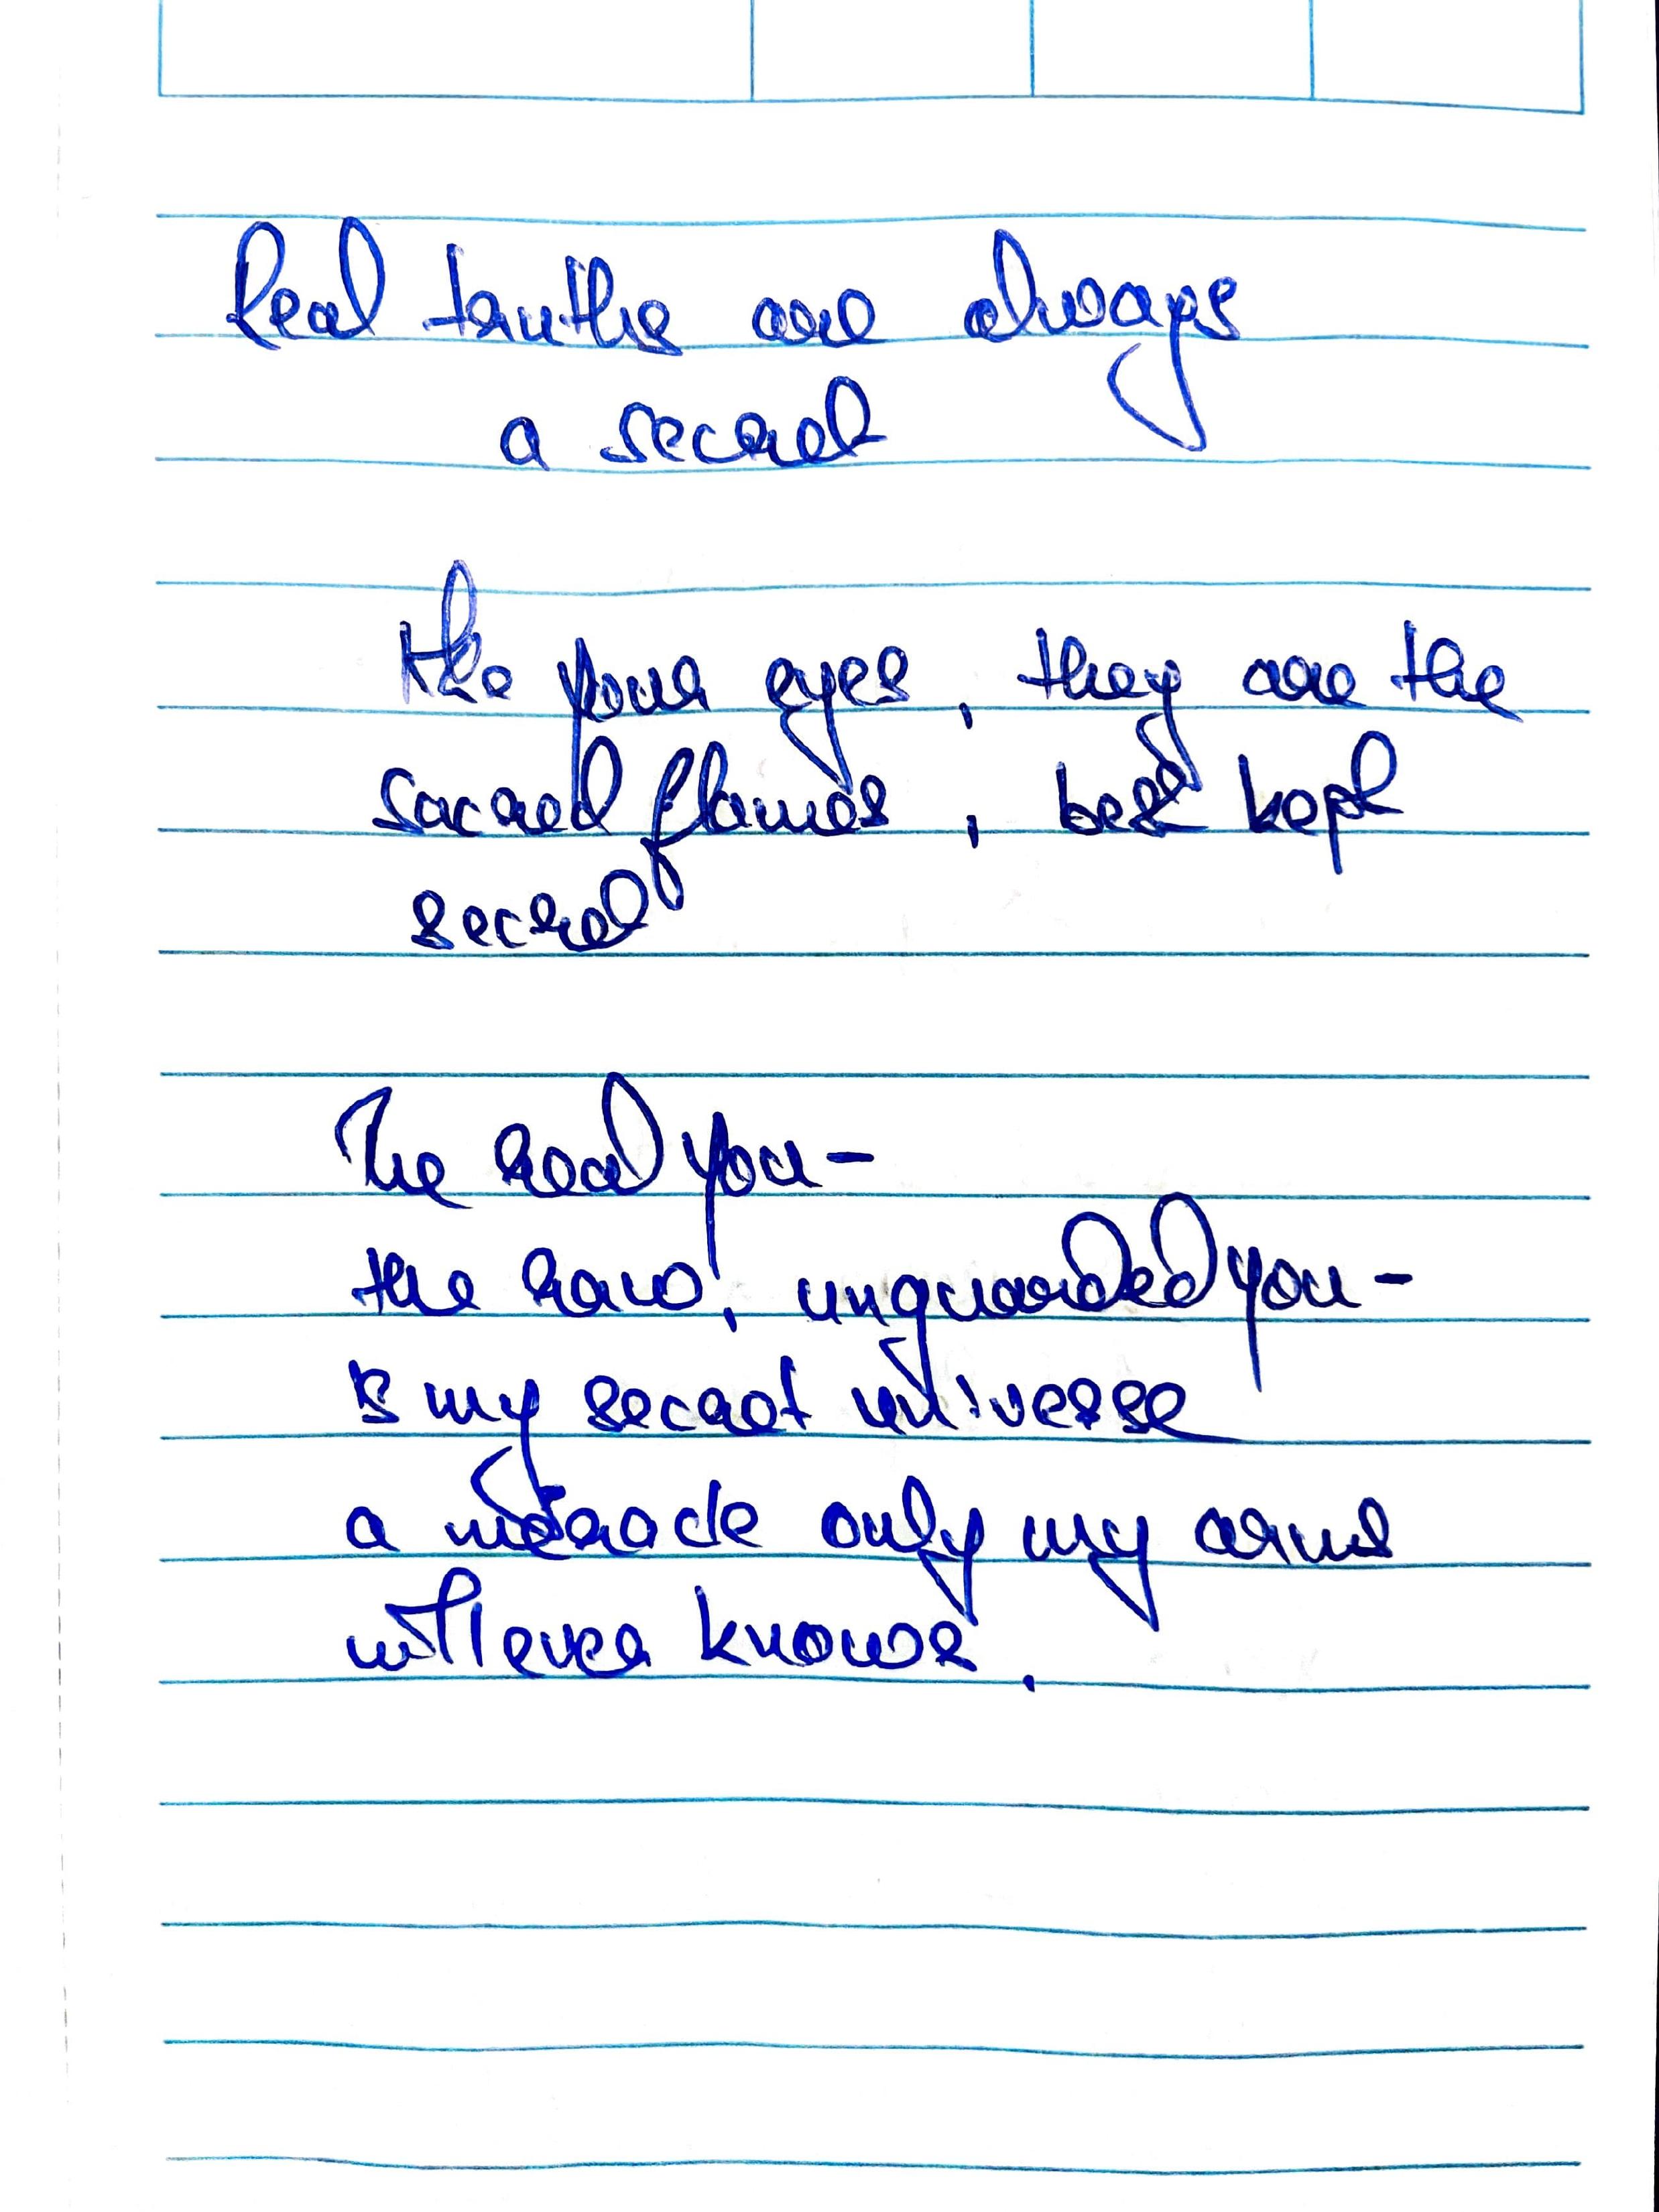 Real truths are always
a secret
the your eyes, they are the
sacred flames, best kept
secret
The real you-
the raw, unguarded you-
is my secret universe
a miracle only my arms
will ever knows.